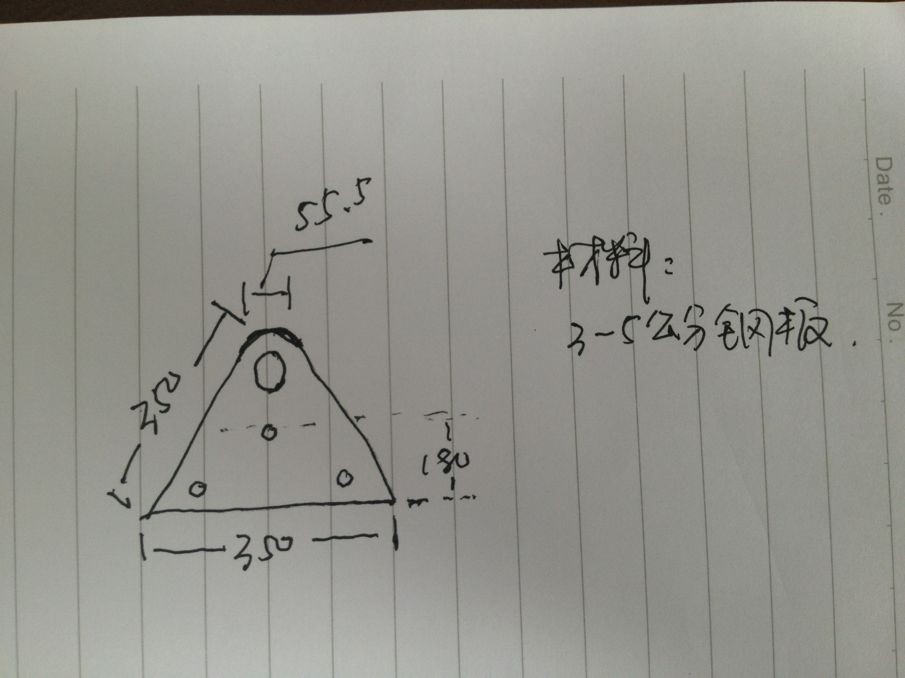 55.5
材料:
3-5公分钢板.
350
180
350
Date.
No.